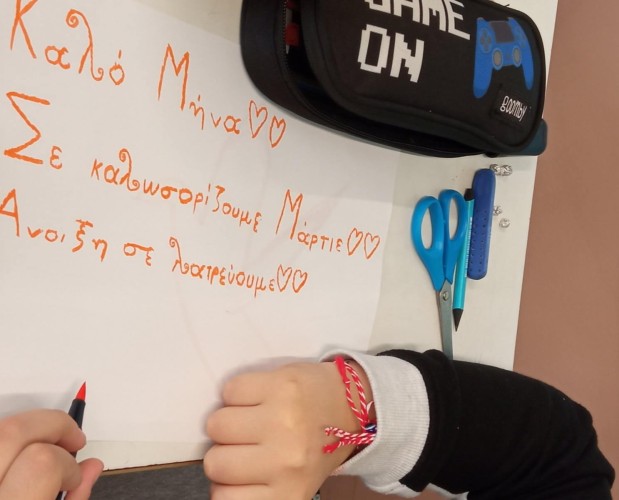 Καλό Μήνα♡♡
Σε καλωσορίζουμε Μάρτιε♡♡
Ανοιξη σε λατρεύουμε♡♡
GAME
ON
goomby